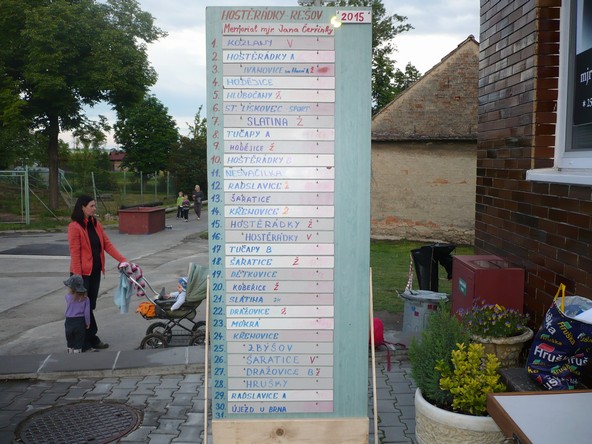 HOSTĚRÁDKY-REŠOV 2015
Memoriál mjr. Jana Čermáka
1. ROZLANY V
2. HOSTĚRÁDKY A
3. "IVANOVICE Ž
4. HODĚJICE
5. HLUBOČANY Ž
6. ST. LÍSKOVEC - SPORT
7. "SLATINA Ž
8. TUČAPY A
9. HODĚJICE Ž
10. HOSTĚRÁDKY
11. NESVAČILKA
12. RADSLAVICE Ž
13. ŠARATICE
14. KŘENOVICE Ž
15. HOSTĚRÁDKY Ž
16. "HOSTĚRÁDKY V "
17. TUČAPY B
18. ŠARATICE Ž
19. BĚTKOVICE
20. KOBEŘICE Ž
21. SLATINA
22. DRAŽOVICE Ž
23. MOKRÁ
24. KŘENOVICE
25. "ZBÝŠOV "
26. "ŠARATICE V "
27. "DRAŽOVICE B "
28. "HRUŠKY "
29. RADSLAVICE A
30. ÚJEZD U BRNA
31.
mjr
Hruška